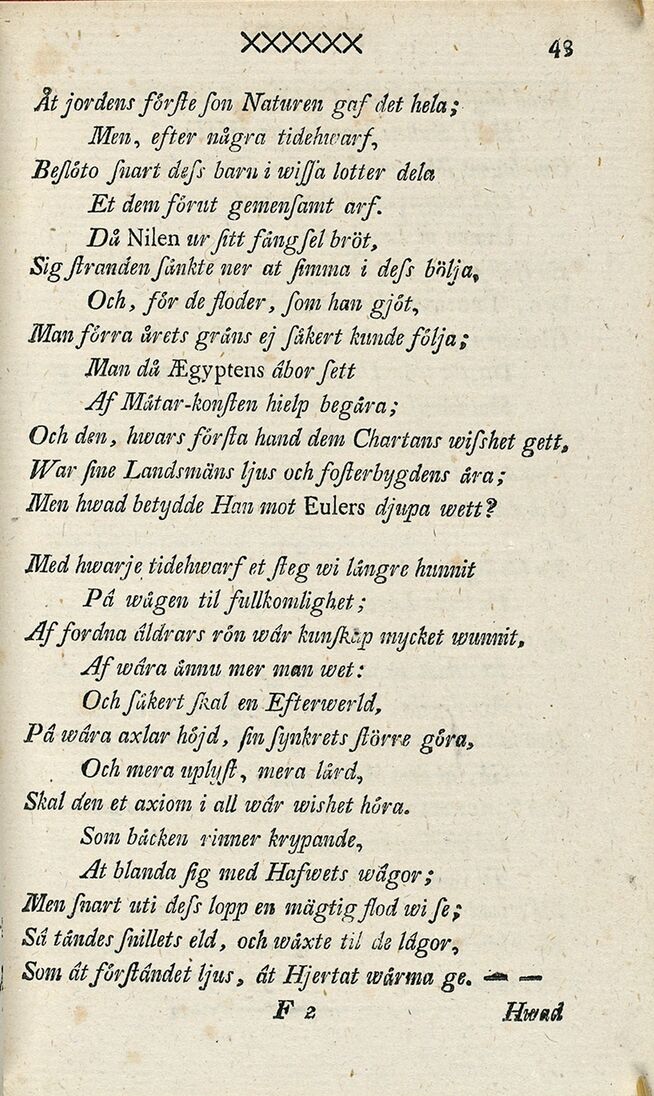 XXXXXX 43
Åt jordens förſte ſon Naturen gaf det hela;
Men, efter några tidehwarf,
Beſlöto ſnart deſs barn i wiſſa lotter dela
Et dem förut gemenſamt arf.
Då Nilen ur ſitt fångſel bröt,
Sig ſtranden ſänkte ner at ſimma i deſs bölja,
Och, för de floder, ſom han gjöt,
Man förra årets gräns ej ſäkert kunde följa;
Man då Ægyptens åbor ſett
Af Mätar-konſten hielp begära;
Och den, hwars förſta hand dem Chartans wiſshet gett,
War ſine Landsmäns ljus och foſterbygdens ära;
Men hwad betydde Han mot Eulers djupa wett?
Med hwarje tidehwarf et ſteg wi längre hunnit
På wägen til fullkomlighet;
Af fordna åldrars rön wår kunſkap mycket wunnit,
Af wåra ännu mer man wet:
Och ſäkert ſkal en Efterwerld,
På wåra axlar höjd, ſin ſynkrets ſtörre göra,
Och mera uplyſt, mera lärd,
Skal den et axiom i all wår wishet höra.
Som bäcken rinner krypande,
At blanda ſig med Hafwets wågor;
Men ſnart uti deſs lopp en mägtig flod wi ſe;
Så tändes ſnillets eld, och wäxte til de lågor,
Som åt förſtåndet ljus, åt Hjertat wärma ge. — —
F 2 Hwad